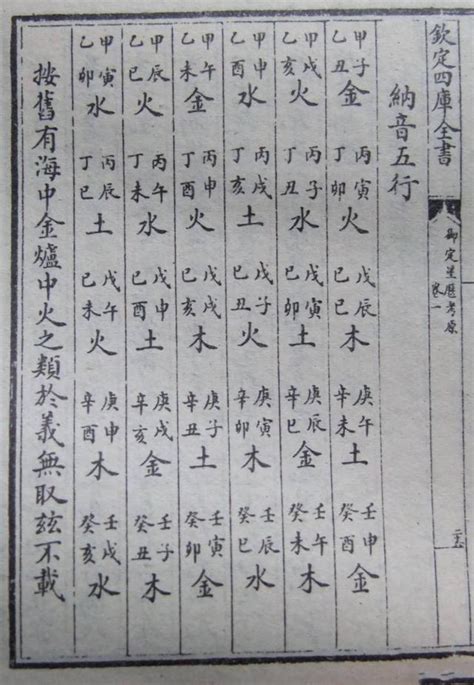 欽定四庫全書
御定星歷考原
卷一
納音五行
甲子乙丑金 丙寅丁卯火 戊辰己巳木 庚午辛未土 壬申癸酉金
甲戌乙亥火 丙子丁丑水 戊寅己卯土 庚辰辛巳金 壬午癸未木
甲申乙酉水 丙戌丁亥土 戊子己丑火 庚寅辛卯木 壬辰癸巳水
甲午乙未金 丙申丁酉火 戊戌己亥木 庚子辛丑土 壬寅癸卯金
甲辰乙巳火 丙午丁未水 戊申己酉土 庚戌辛亥金 壬子癸丑木
甲寅乙卯水 丙辰丁巳土 戊午己未火 庚申辛酉木 壬戌癸亥水
按舊有海中金爐中火之類於義無取茲不載